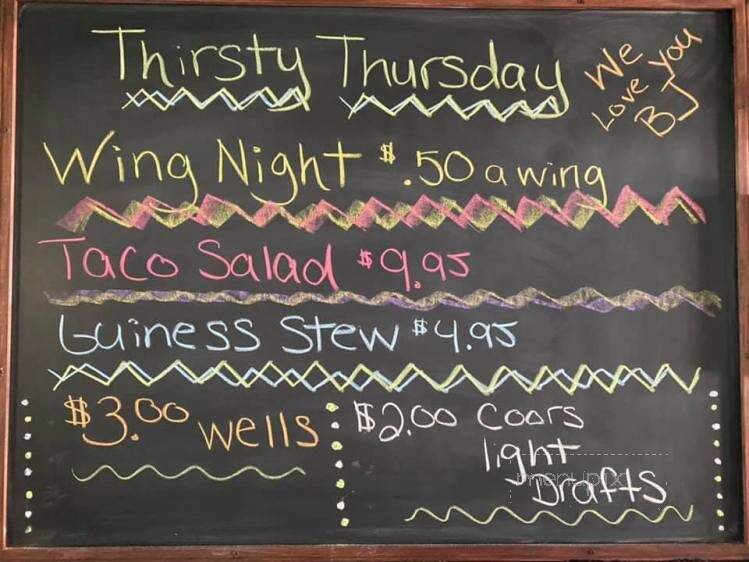 Thirsty Thursday
We
Love you
BJ
Wing Night $.50 a wing
Taco Salad $9.95
Guiness Stew $4.95
$3.00 wells
$2.00 Coors
light
Drafts
menupix